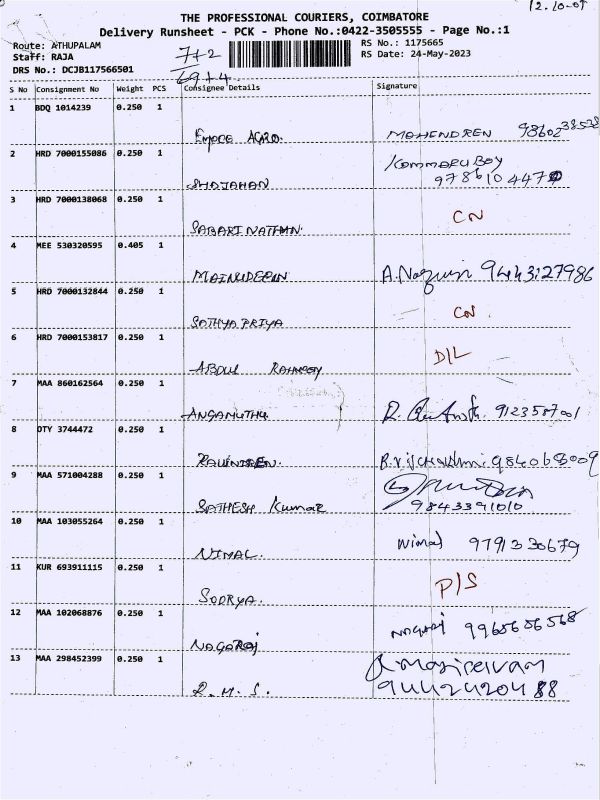 12.10-05
THE PROFESSIONAL COURIERS, COIMBATORE
Delivery Runsheet - PCK - Phone No.:0422-3505555 - Page No.:1
Route: ATHUPALAM 7+2 RS No.: 1175665
Staff: RAJA RS Date: 24-May-2023
DRS No.: DCJB117566501 69+4
S No Consignment No Weight PCS Consignee Details Signature
1 BDQ 1014239 0.250 1
AGRO. MAHENDREN
2 HRD 7000155086 0.250 1
SHAJAHAN
3 HRD 7000138068 0.250 1 CN
SABARINATHAN.
4 MEE 530320595 0.405 1
MAINUDEEEN A. 9443127986
5 HRD 7000132844 0.250 1 CN
SATHYAPRIYA
6 HRD 7000153817 0.250 1 D/L
ABDUL
7 MAA 860162564 0.250 1
ANGAMUTHU R.
8 OTY 3744472 0.250 1
RAVINDREN. 984068009
9 MAA 571004288 0.250 1
SATHESH Kumar 9843391010
10 MAA 103055264 0.250 1
NIMAL. Nimal 9791330679
11 KUR 693911115 0.250 1 P/S
SOORYA.
12 MAA 102068876 0.250 1
NAGARAJ Nagaraj 9965656568
13 MAA 298452399 0.250 1
R.M.S. 9442420488